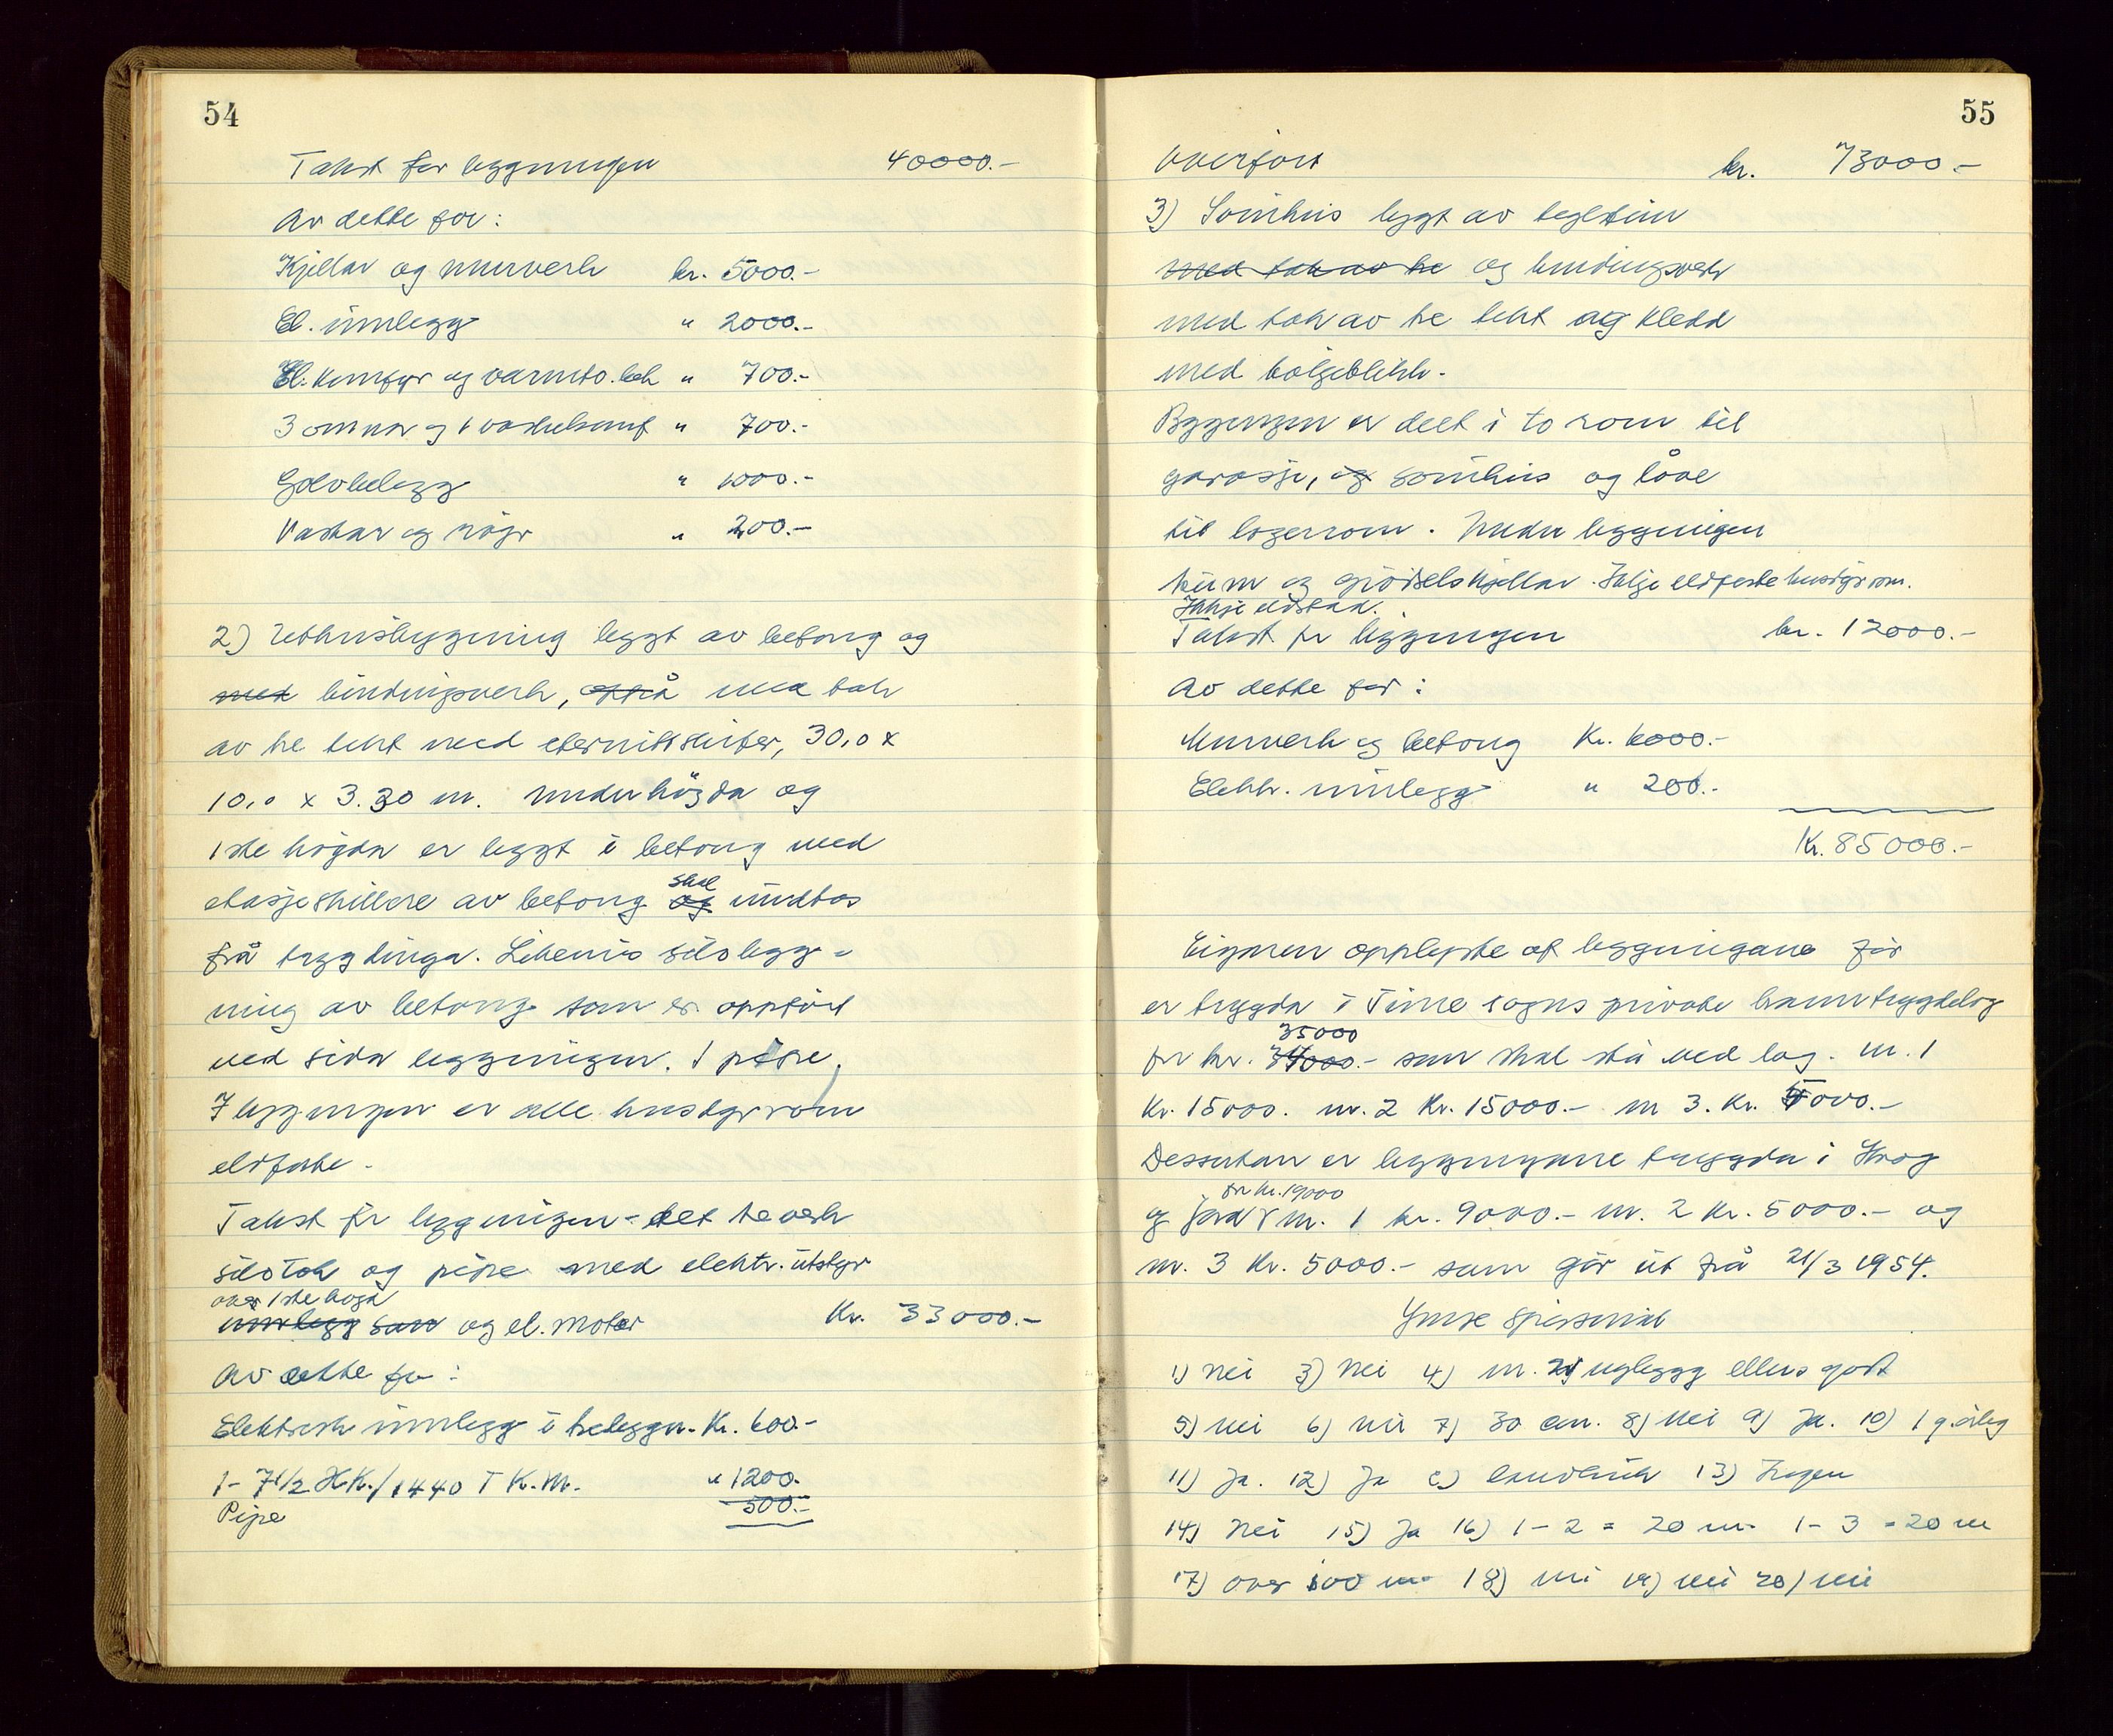 54
Takst for bygningen 40000.-
Av dette for:
Kjellar og murverk kr. 5000.-
El. innlegg " 2000.-
El. komfyr og varmtv.beh " 700.-
3 omnar og 1 " 700.-
Golvbelegg " 1000.-
Vaskar og røyr " 200.-
2) Uthusbygning bygt av betong og
med bindingsverk, også med tak
av tre tekt med eternittskifer, 30,0 x
10,0 x 3.30 m. Underhögda og
1ste högda er bygt i betong med
skal
etasjeskillere av betong og unntas
frå trygdinga. Likeeins silobygg-
ning av betong som er oppført
ved sida bygningen. 1 pipe.
I bygningen er alle husdyrrom
eldfaste.
Takst for bygningen - det treverk
silotak og pipe med elektr. utstyr
over 1ste høgd
innlegg sam og el. motor Kr. 33000.-
Av dette for:
Elektrisk innlegg i trebygn. Kr. 600.-
1- 7 1/2 H.K./1440 T K.M. " 1200.-
Pipe 500.-
55
Overført kr. 73000.-
3) Svinhus bygt av teglstein
med tak av tre og bindingsverk
med tak av tre tekt og kledd
med bølgeblikk.
Bygningen er delt i to rom til
garasje, og svinhus og låve
til lagerrom. Under bygningen
kum og gjødselskjellar. Ikkje eldfaste husdyrrom.
Ikkje eldstad.
Takst for bygningen kr. 12000.-
Av dette for:
Murverk og betong Kr. 6000.-
Elektr. innlegg " 200.-
Kr. 85000.-
Eigaren opplyste at bygningane før
er trygda i Time sogns private branntrygdelag
35000
for kr. 34000.- som skal stå ved lag. nr. 1
Kr. 15000. nr. 2 Kr. 15000.- nr 3. Kr. 5000.-
Dessutan er bygningane trygda i Skog
for kr. 19000
og Jord nr. 1 kr. 9000.- nr. 2 Kr. 5000.- og
nr. 3 Kr. 5000.- som går ut frå 21/3 1954.
Ymse spursmål
1) Nei 3) Nei 4) nr. 2 nybygg ellers godt
5) nei 6) nei 7) 30 cm. 8) Nei 9) Ja. 10) 1 g. årleg
11) Ja. 12) Ja c) landbruk 13) Ingen
14) Nei 15) Ja 16) 1-2 = 20 m 1-3 = 20 m
17) over 100 m 18) nei 19) nei 20) nei